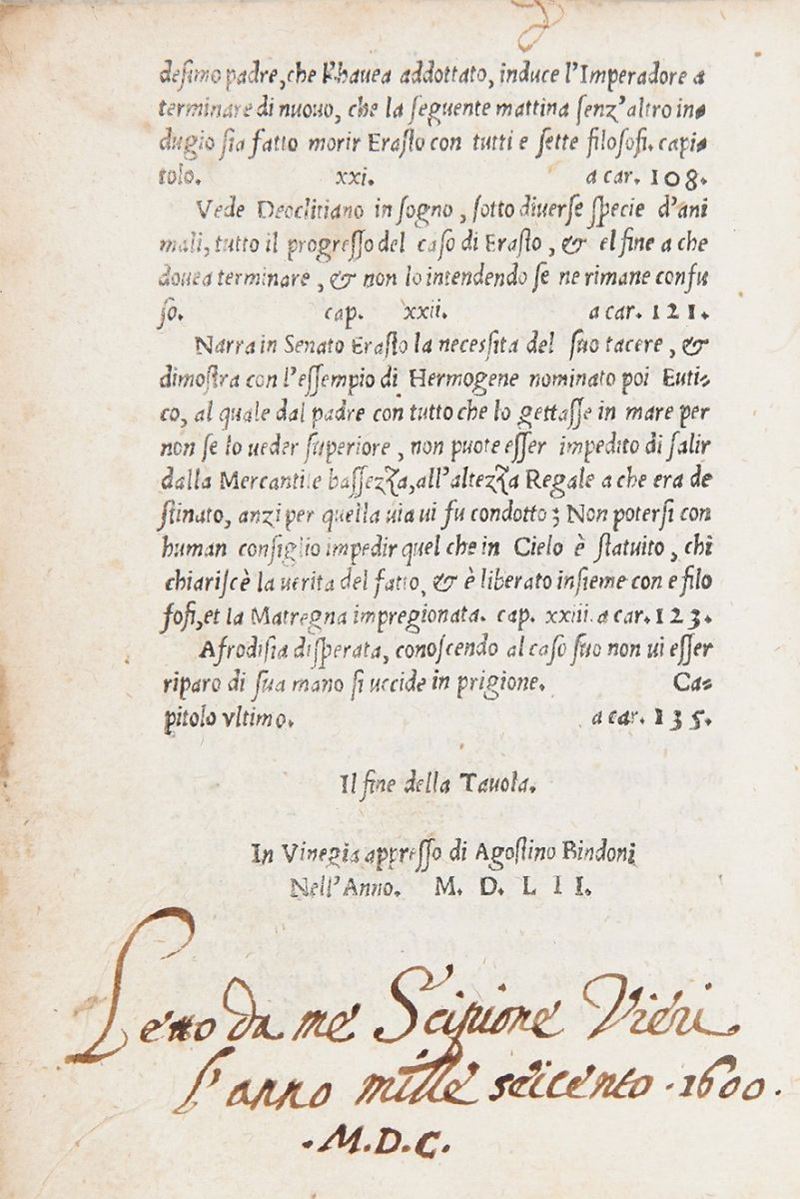 desimo padre, che l'hauea addottato, induce l'Imperadore a
terminare di nuouo, che la seguente mattina senz'altro in=
dugio sia fatto morir Erasto con tutti e sette filosofi. capi=
tolo. xxi. a car. 108.
Vede Deoclitiano in sogno, sotto diuerse specie d'ani
mali, tutto il progresso del caso di Erasto, & el fine a che
douea terminare, & non lo intendendo se ne rimane confu
so. cap. xxii. a car. 121.
Narra in Senato Erasto la necessita del suo tacere, &
dimostra con l'essempio di Hermogene nominato poi Euti=
co, al quale dal padre con tutto che lo gettasse in mare per
non se lo ueder superiore, non puote esser impedito di salir
dalla Mercantile bassezza, all'altezza Regale a che era de
stinato, anzi per quella uia ui fu condotto; Non potersi con
human consiglio impedir quel che in Cielo è statuito, chi
chiariscè la uerita del fatto, & è liberato insieme con e filo
sofi, et la Matregna impregionata. cap. xxiii. a car. 123.
Afrodisia disperata, conoscendo al caso suo non ui esser
riparo di sua mano si uccide in prigione. Ca=
pitolo vltimo. a car. 135.
Il fine della Tauola.
In Vinegia appresso di Agostino Bindoni
Nell'Anno. M. D. L I I.
Letto da me Scipione Vieri
l'anno mille seicento. 1600.
.M.D.C.